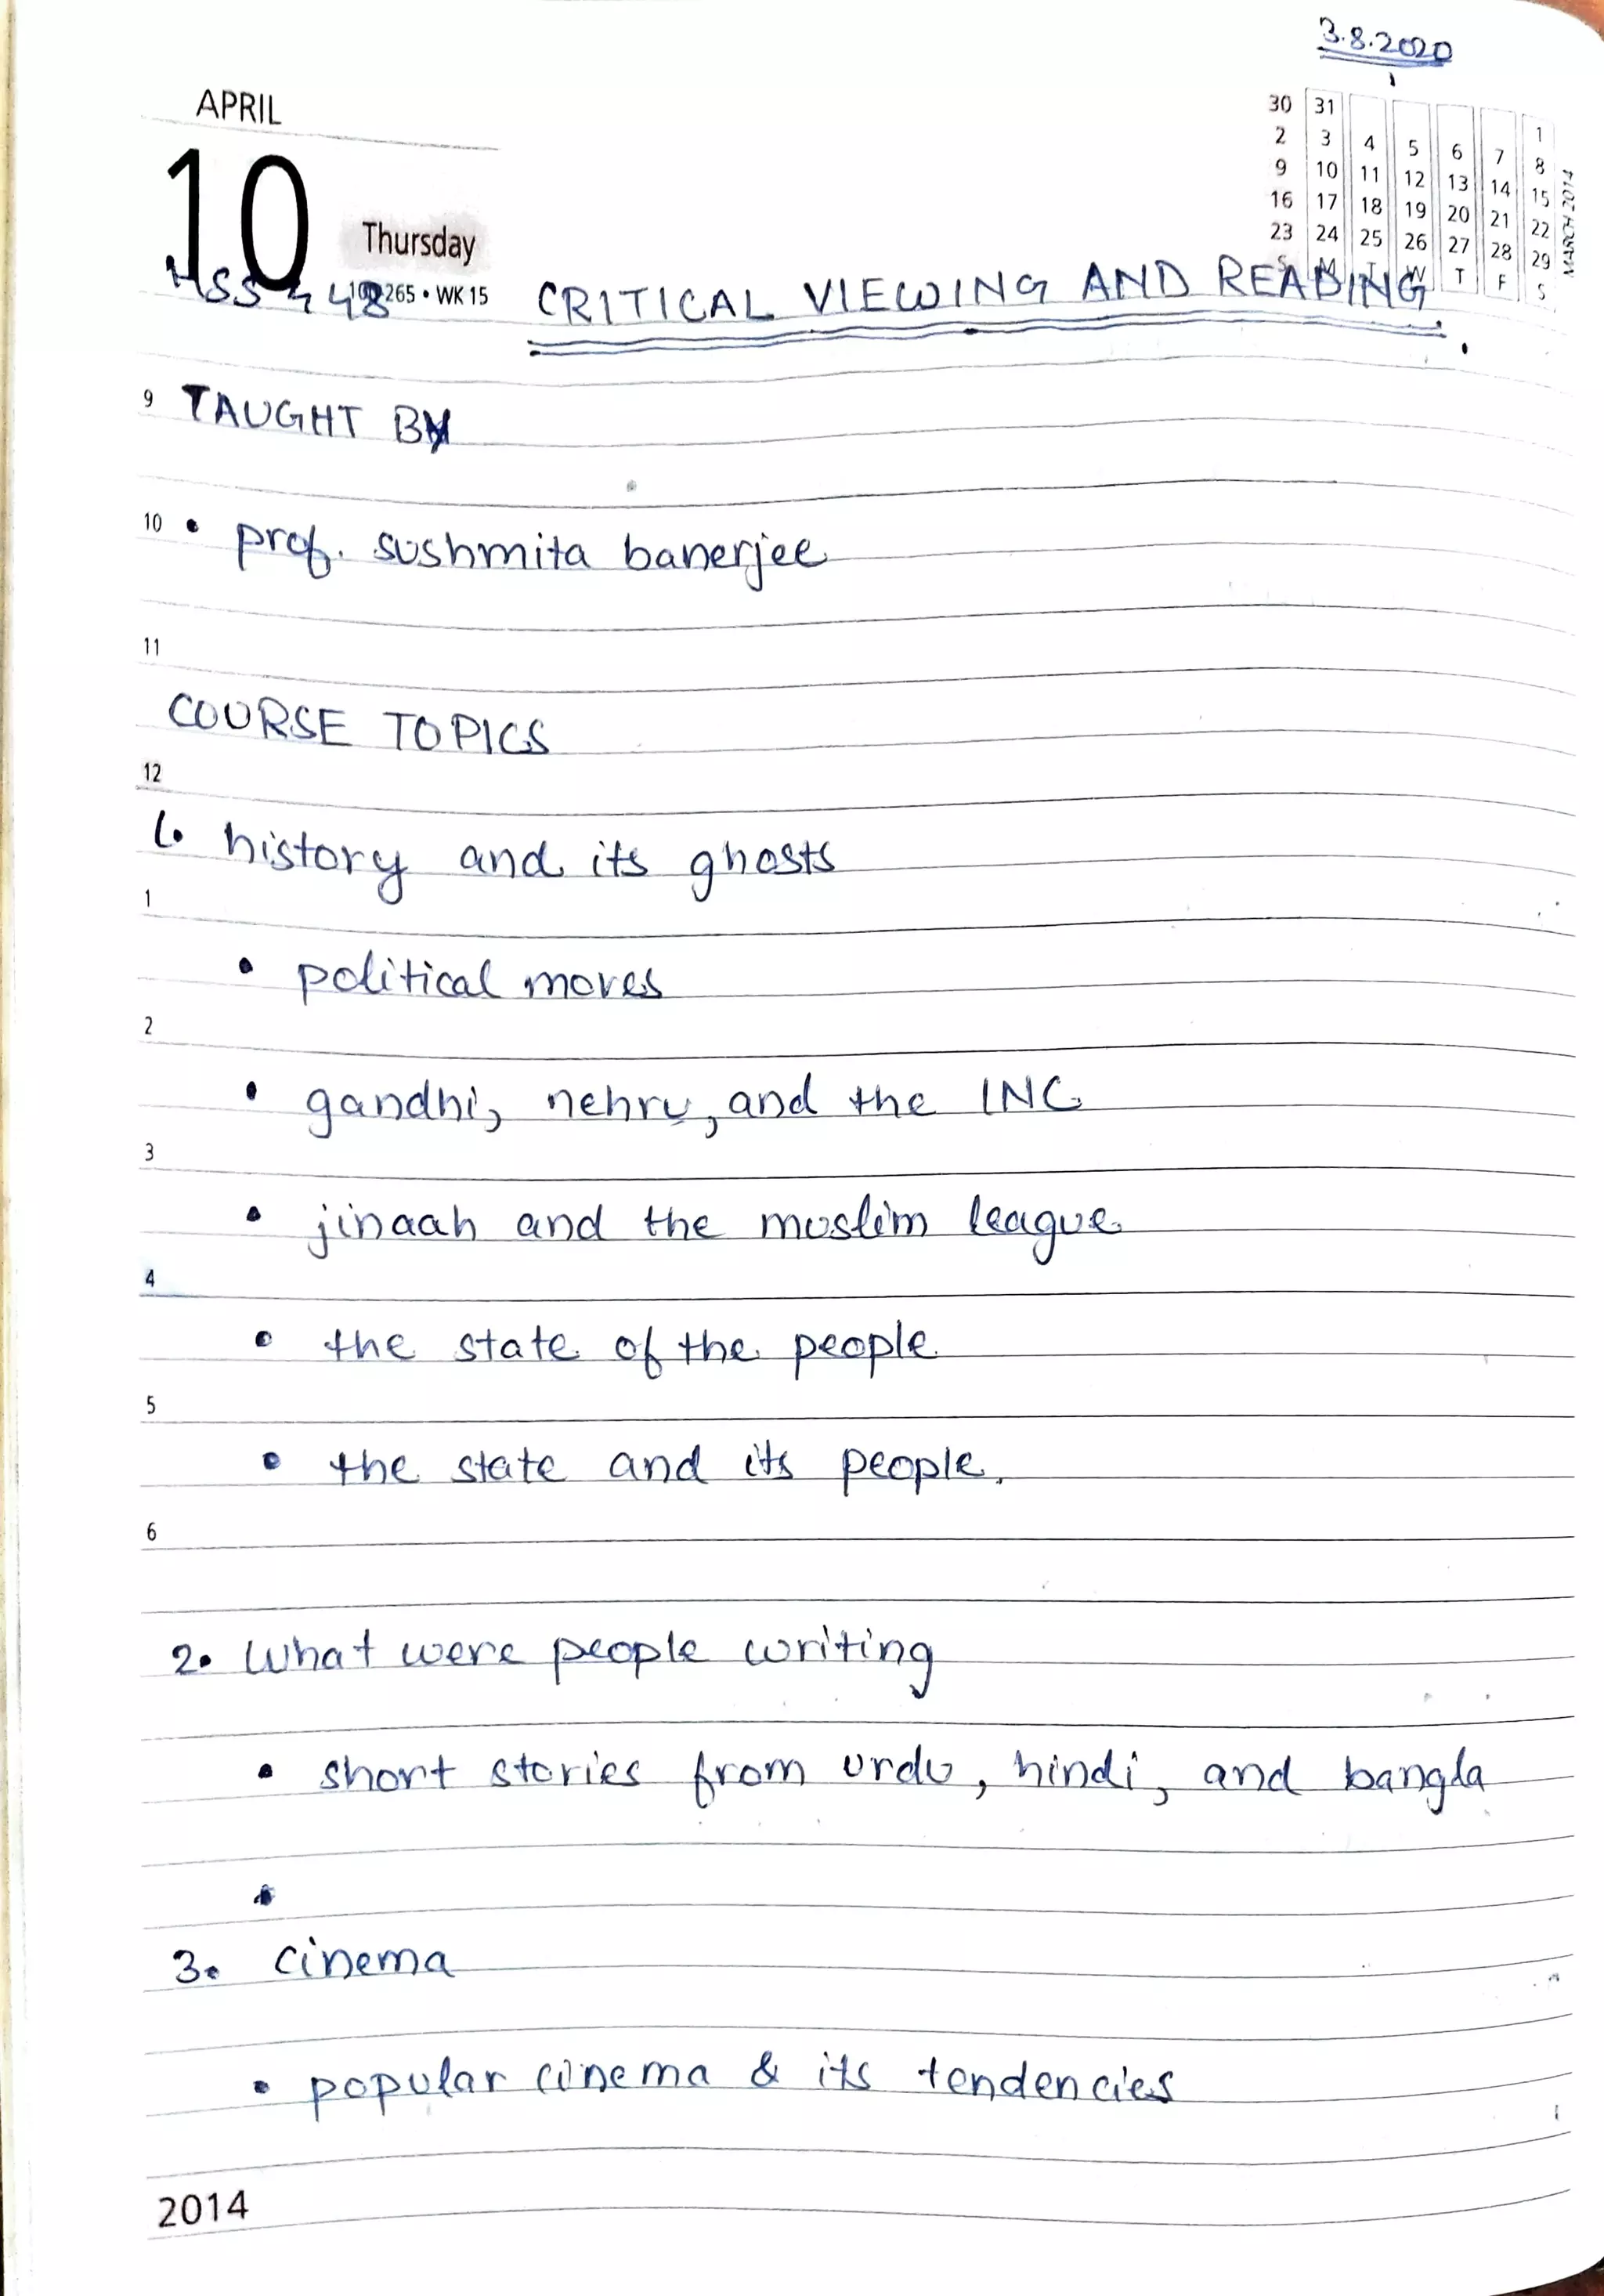 3.8.2020
APRIL
10
Thursday
100-265 • WK 15
30 31 1
2 3 4 5 6 7 8
9 10 11 12 13 14 15
16 17 18 19 20 21 22
23 24 25 26 27 28 29
S M T W T F S
MARCH 2014
HSS 448 CRITICAL VIEWING AND READING.
9 TAUGHT BY
10 • prof. sushmita banerjee
11
COURSE TOPICS
12
1. history and its ghosts
1
• political moves
2
• gandhi, nehru, and the INC
3
• jinaah and the muslim league
4
• the state of the people
5
• the state and its people.
6
2. What were people writing
• short stories from urdu, hindi, and bangla
•
3. cinema
• popular cinema & its tendencies
2014